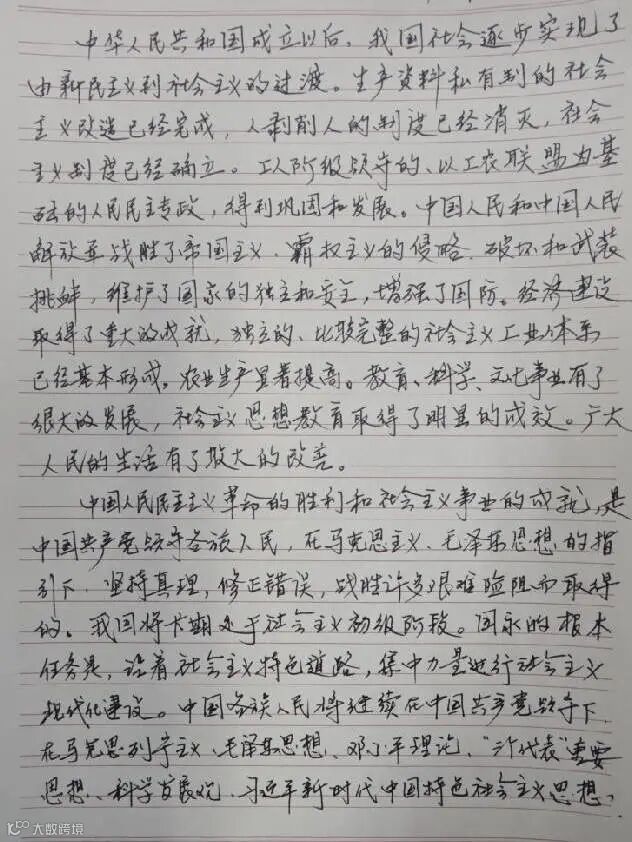 中华人民共和国成立以后，我国社会逐步实现了
由新民主义到社会主义的过渡。生产资料私有制的社会
主义改造已经完成，人剥削人的制度已经消灭，社会
主义制度已经确立。工人阶级领导的、以工农联盟为基
础的人民民主专政，得到巩固和发展。中国人民和中国人民
解放军战胜了帝国主义、霸权主义的侵略、破坏和武装
挑衅，维护了国家的独立和安全，增强了国防。经济建设
取得了重大的成就，独立的、比较完整的社会主义工业体系
已经基本形成，农业生产显著提高。教育、科学、文化事业有了
很大的发展，社会主义思想教育取得了明显的成效。广大
人民的生活有了较大的改善。
中国人民民主主义革命的胜利和社会主义事业的成就，是
中国共产党领导各族人民，在马克思主义、毛泽东思想的指
引下，坚持真理，修正错误，战胜许多艰难险阻而取得
的。我国将长期处于社会主义初级阶段。国家的根本
任务是，沿着社会主义特色道路，集中力量进行社会主义
现代化建设。中国各族人民将继续在中国共产党领导下，
在马克思列宁主义、毛泽东思想、邓小平理论、“三个代表”重要
思想、科学发展观、习近平新时代中国特色社会主义思想、
大数跨境